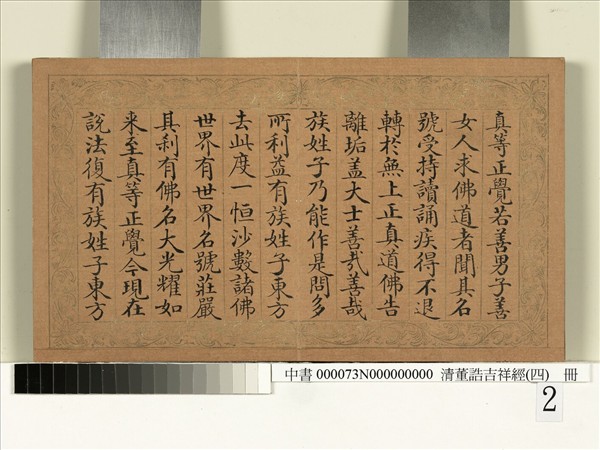 真等正覺若善男子善
女人求佛道者聞其名
號受持讀誦疾得不退
轉於無上正真道佛告
離垢蓋大士善哉善哉
族姓子乃能作是問多
所利益有族姓子東方
去此度一恒沙數諸佛
世界有世界名號莊嚴
其刹有佛名大光耀如
來至真等正覺今現在
說法復有族姓子東方
中書 000073N000000000 清董誥吉祥經(四) 冊
2